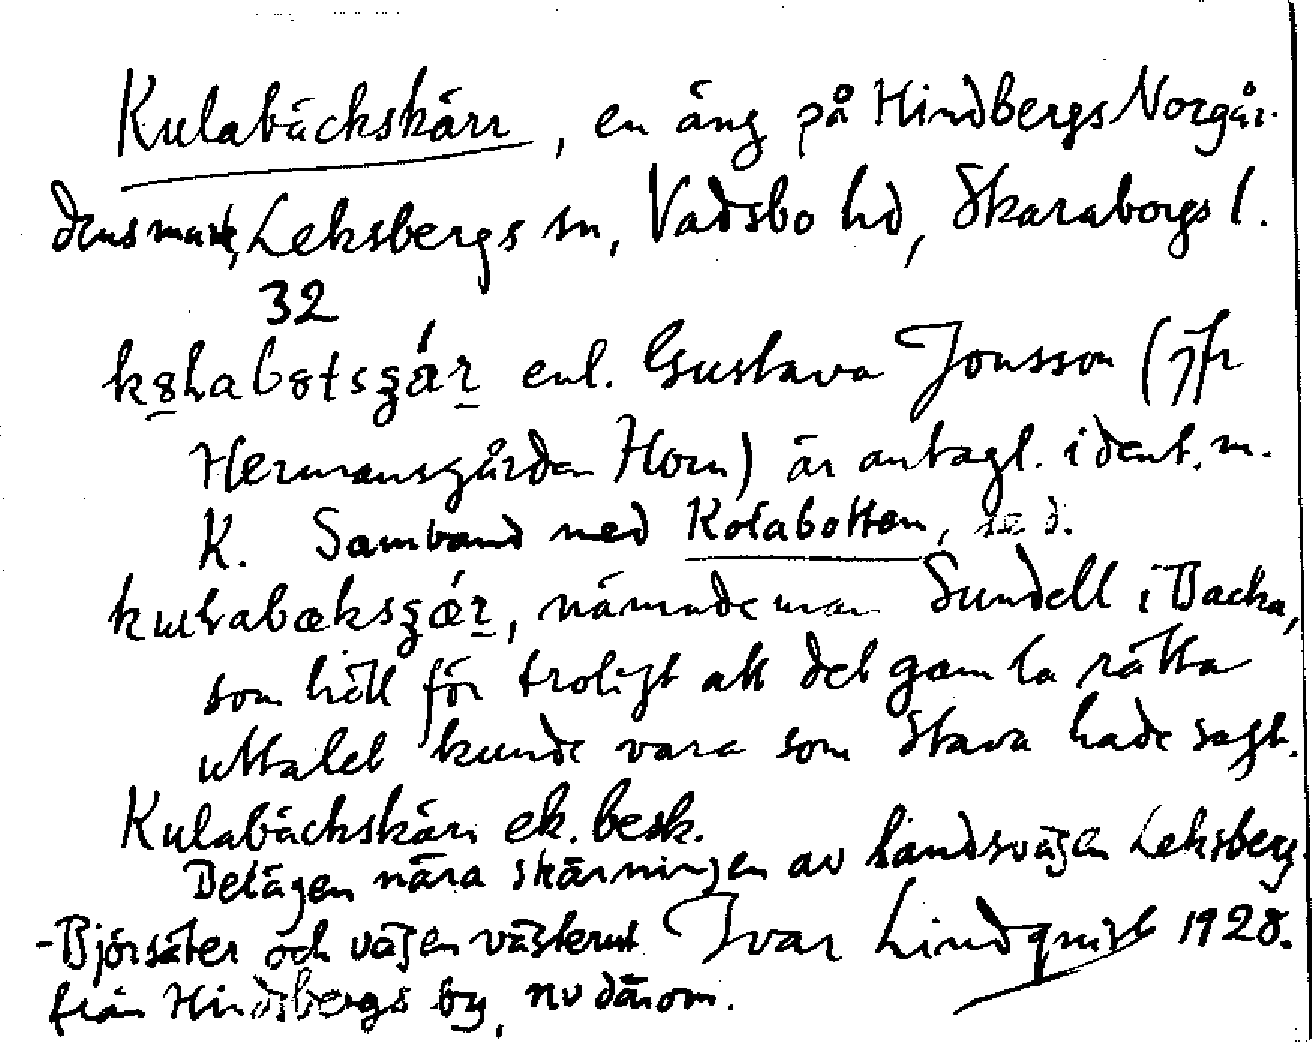 Kulabäckskärr, en äng på Hindbergs Norgår-
dens mark, Leksbergs sn, Vadsbo hd, Skaraborgs l.
32
enl. Gustava Jonsson (jfr
Hermansgården Horn) är antagl. ident. m.
K. Samband med Kolabotten, se d.
nämndeman Sundell i Backa,
som höll för troligt att det gamla rätta
uttalet kunde vara som Stava hade sagt.
Kulabäckskärr ek. besk.
Belägen nära skärningen av landsvägen Leksberg
-Björsäter och vägen västerut Ivar Lindquist 1928.
från Hindsbergs by, nv därom.